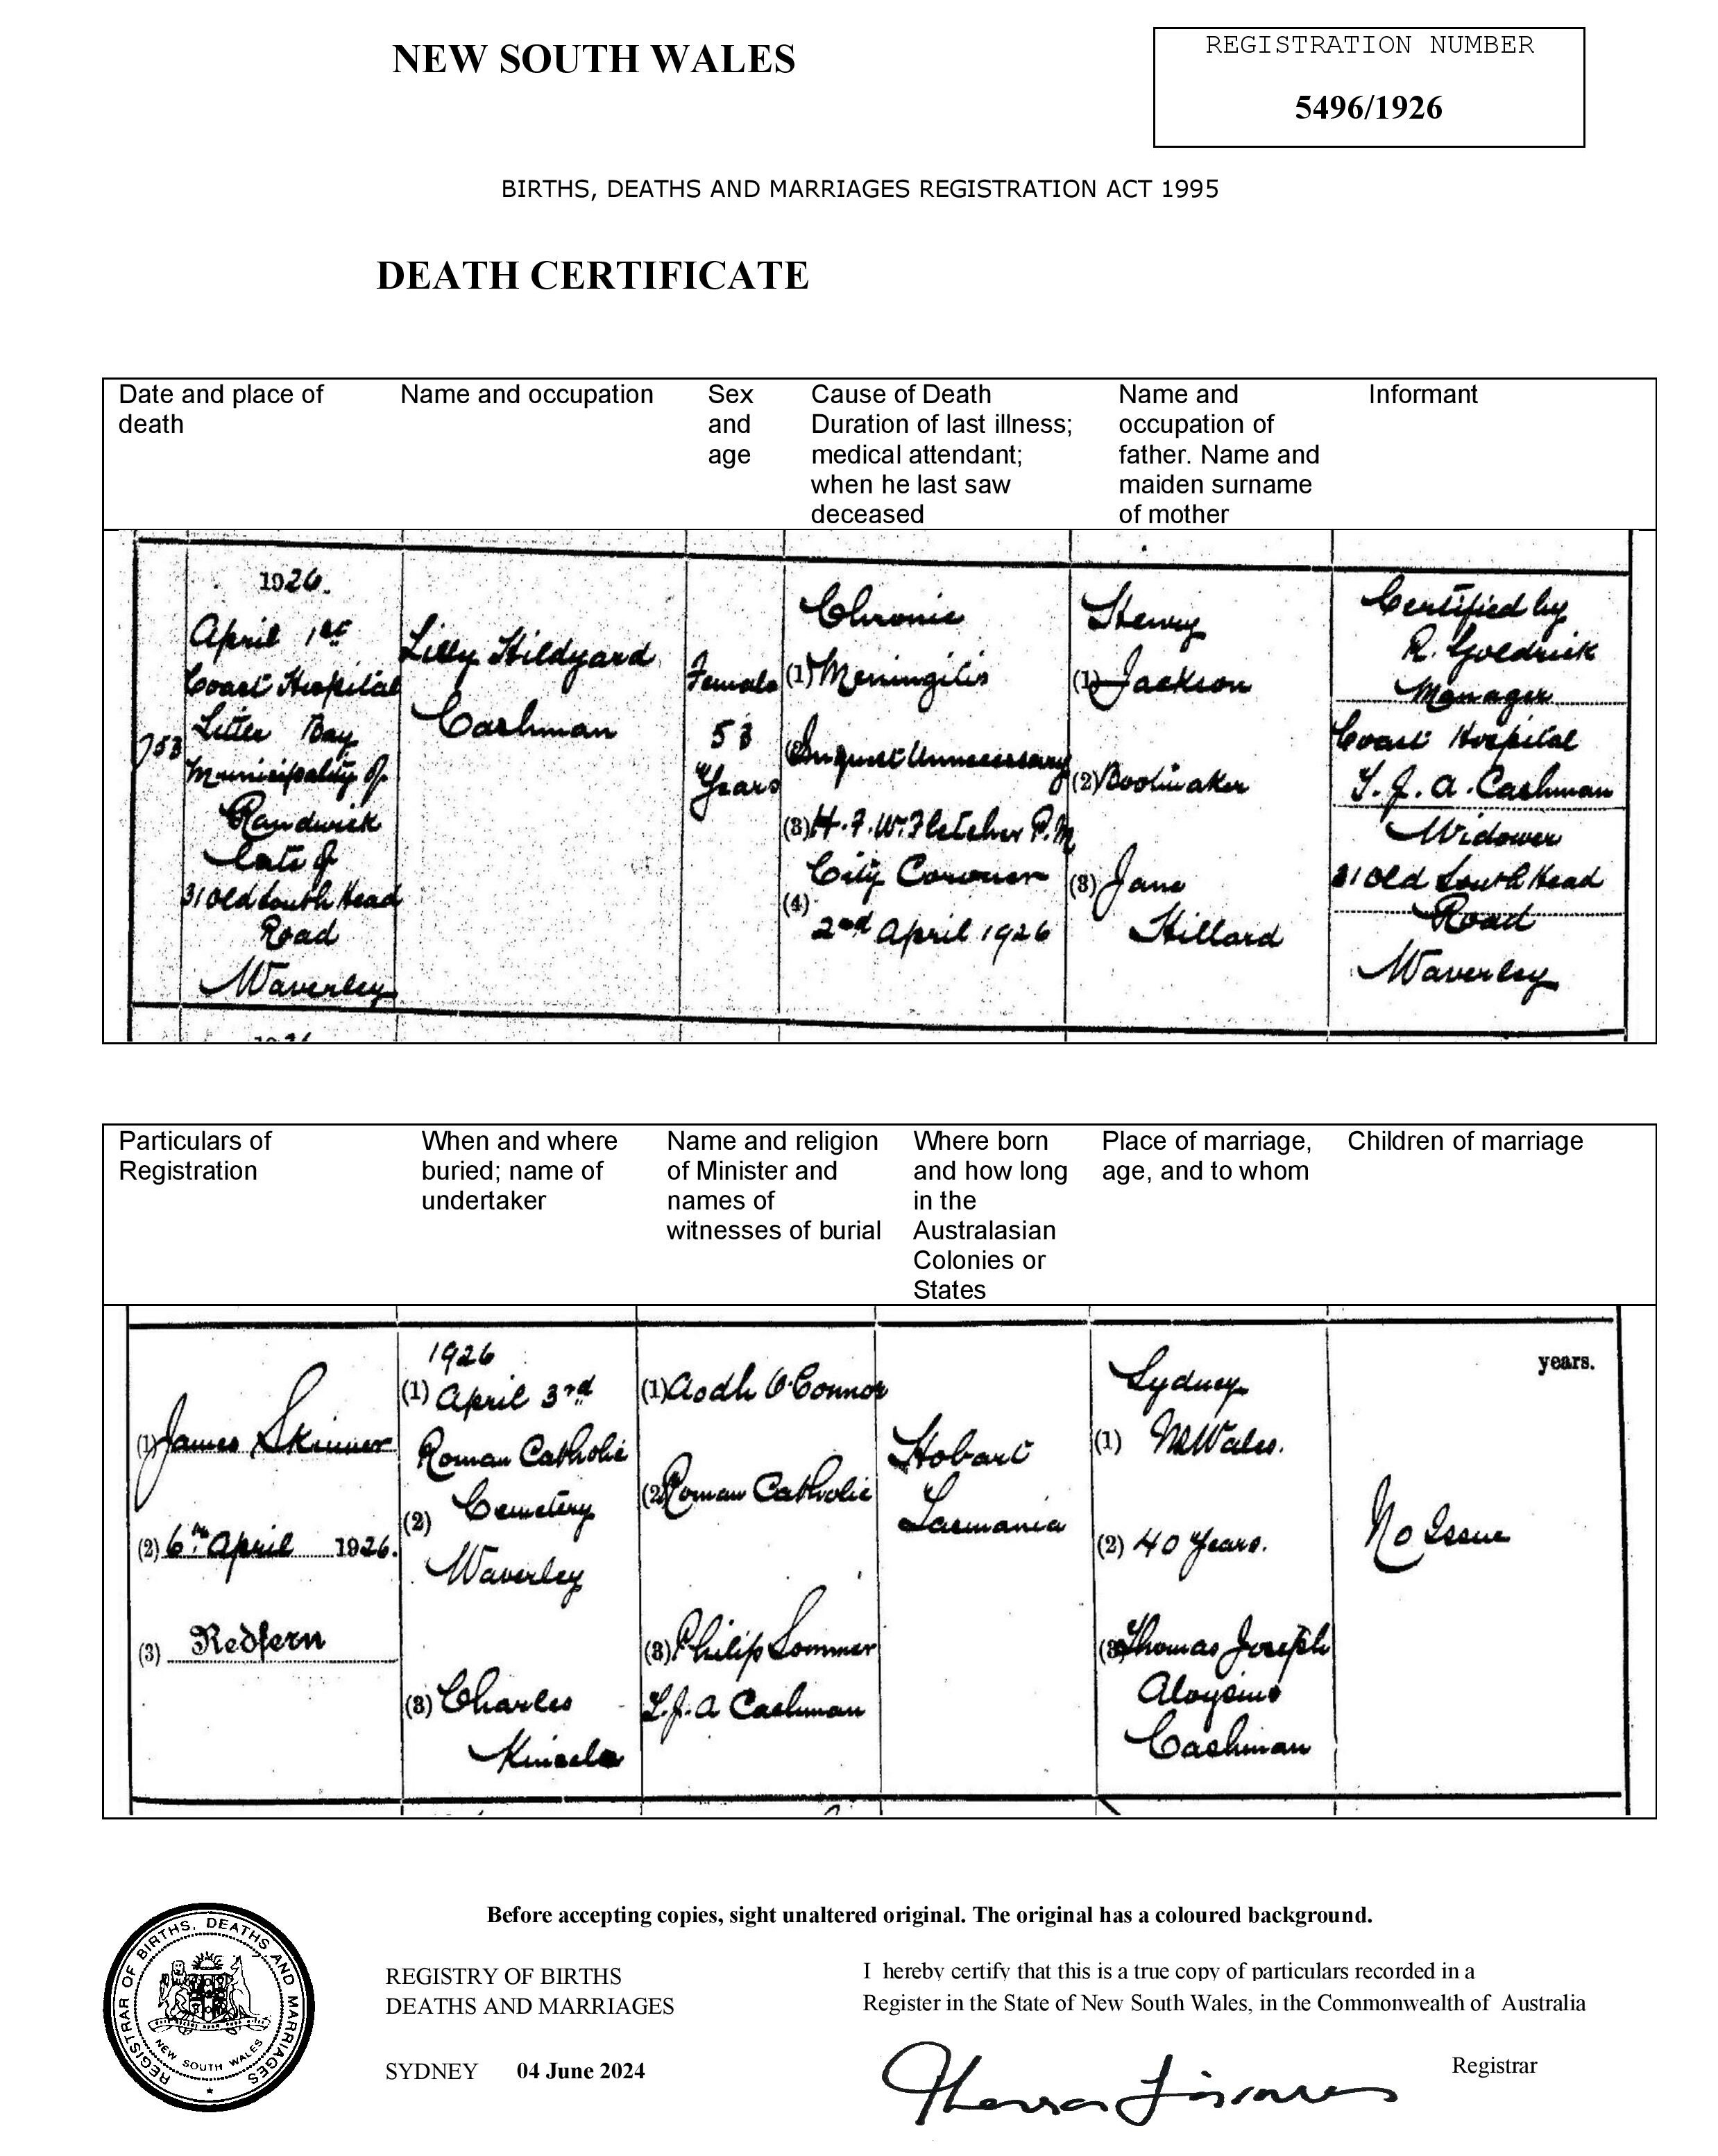 NEW SOUTH WALES
REGISTRATION NUMBER
5496/1926
BIRTHS, DEATHS AND MARRIAGES REGISTRATION ACT 1995
DEATH CERTIFICATE
Date and place of
death
Name and occupation
Sex
and
age
Cause of Death
Duration of last illness;
medical attendant;
when he last saw
deceased
Name and
occupation of
father. Name and
maiden surname
of mother
Informant
753
1926.
April 1st
Coast Hospital
Little Bay
Municipality of
Randwick
Late of
31 Old South Head
Road
Waverley
Lilly Hildyard
Cashman
Female
53
Years
Chronic
(1) Meningitis
(2) Inquest Unnecessary
(3) H. F. W. Fletcher P.M
City Coroner
(4)
2nd April 1926
Henry
(1) Jackson
(2) Bootmaker
(3) Jane
Hillard
Certified by
R. Goldrick
Manager
Coast Hospital
T. J. A. Cashman
Widower
31 Old South Head
Road
Waverley
Particulars of
Registration
When and where
buried; name of
undertaker
Name and religion
of Minister and
names of
witnesses of burial
Where born
and how long
in the
Australasian
Colonies or
States
Place of marriage,
age, and to whom
Children of marriage
(1) James Skinner
(2) 6th April 1926.
(3) Redfern
1926
(1) April 3rd
Roman Catholic
(2) Cemetery
Waverley
(3) Charles
Kinsela
(1) Aodh O'Connor
(2) Roman Catholic
(3) Philip Sommer
T. J. A Cashman
Hobart
Tasmania
Sydney
(1) NSWales.
(2) 40 Years.
(3) Thomas Joseph
Aloysius
Cashman
years.
No Issue
Before accepting copies, sight unaltered original. The original has a coloured background.
REGISTRAR OF BIRTHS, DEATHS AND MARRIAGES
NEW SOUTH WALES
REGISTRY OF BIRTHS
DEATHS AND MARRIAGES
SYDNEY 04 June 2024
I hereby certify that this is a true copy of particulars recorded in a
Register in the State of New South Wales, in the Commonwealth of Australia
Registrar